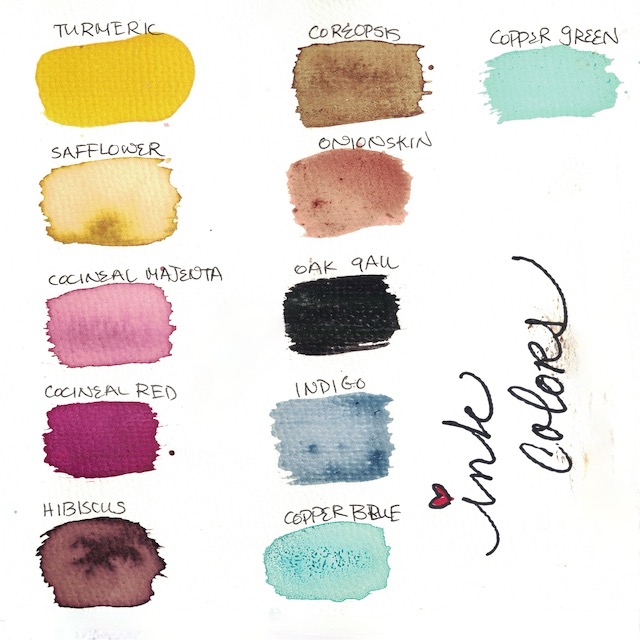 TURMERIC
SAFFLOWER
COCINEAL MAJENTA
COCINEAL RED
HIBISCUS
COREOPSIS
ONIONSKIN
OAK GALL
INDIGO
COPPER BLUE
COPPER GREEN
ink
Colors